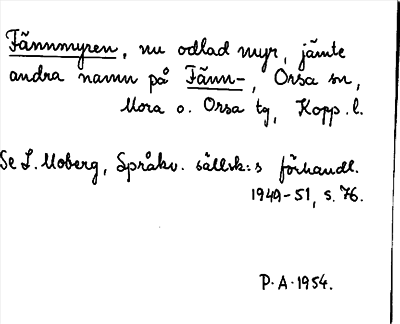 Fännmyren, nu odlad myr, jämte
andra namn på Fänn-, Orsa sn,
Mora o. Orsa tg, Kopp. l.
Se L. Moberg, Språkv. sällsk:s förhandl.
1949-51, s. 76.
P.A. 1954.